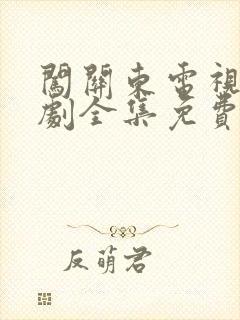 闖關東電視
劇全集免費
反萌君